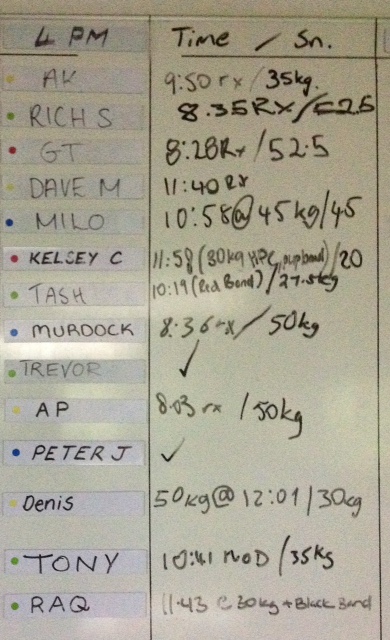 4 PM Time / Sn.
AK 9:50 rx / 35kg.
RICH S 8.35RX / 52.5
GT 8:28Rx / 52.5
DAVE M 11:40 RX
MILO 10:58@45kg/45
KELSEY C 11:58 (30kg HPC, pup band) /20
TASH 10:19 (Red Band) / 27.5kg
MURDOCK 8:36 rx / 50kg
TREVOR ✓
AP 8:03 rx / 50kg
PETER J ✓
Denis 50kg@ 12:01 / 30kg
TONY 10:41 MOD / 35kg
RAQ 11.43 @ 30kg + Black Band